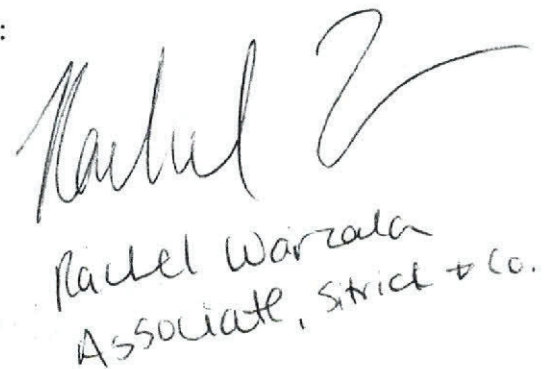 :
Rachel
Rachel Warzala
Associate, Sitrick & Co.